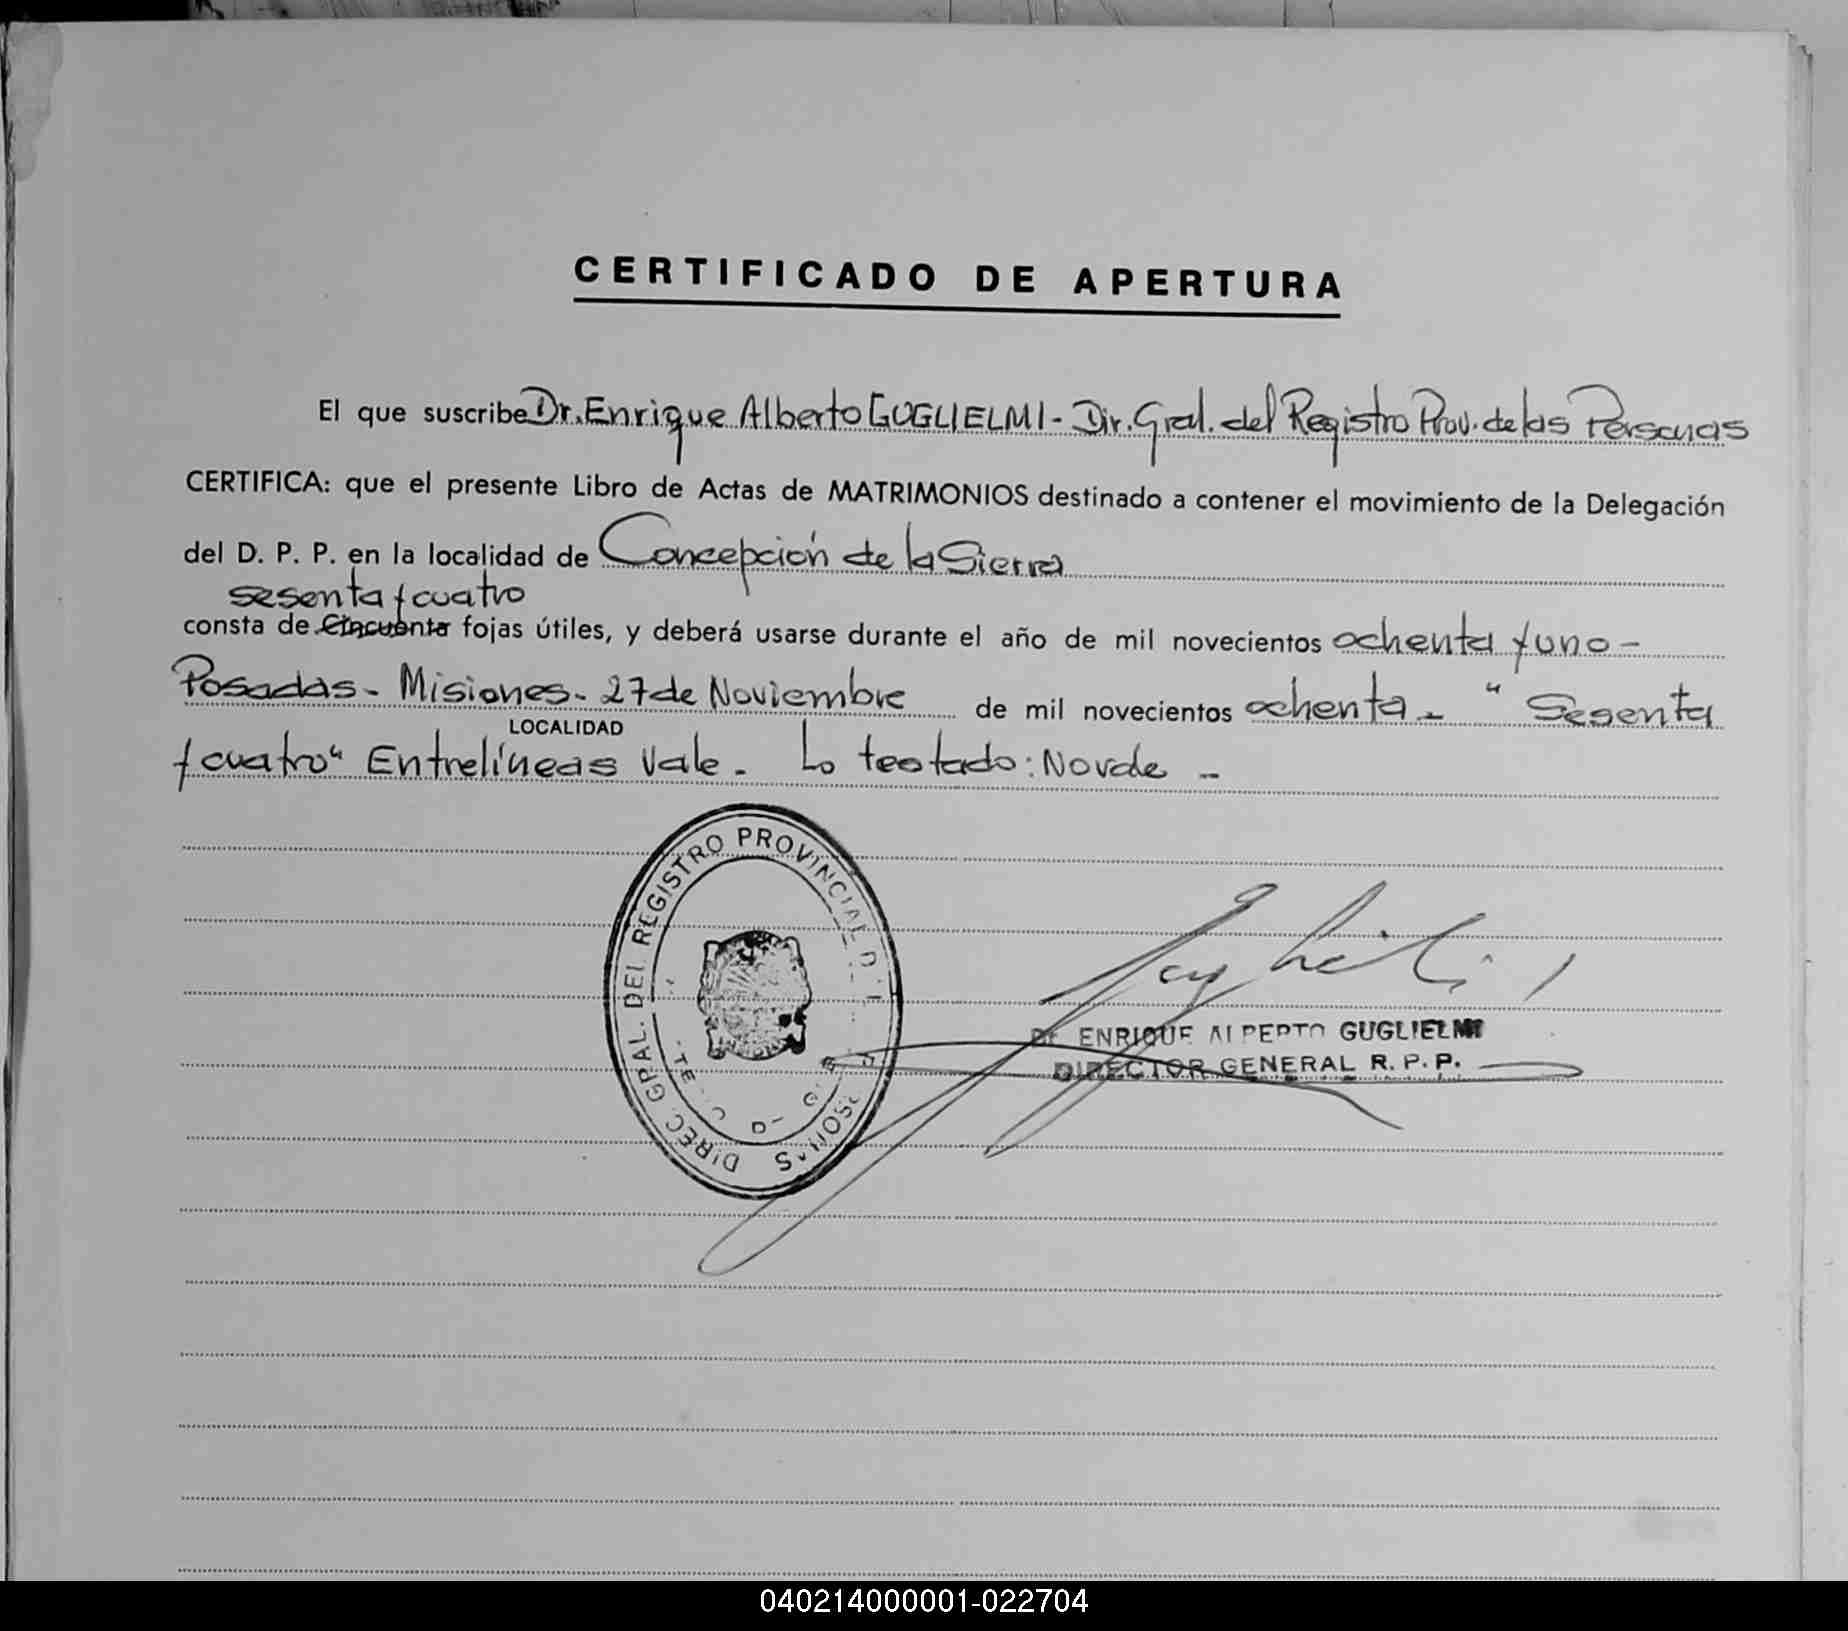 CERTIFICADO DE APERTURA
El que suscribe Dr. Enrique Alberto GUGLIELMI - Dir. Gral. del Registro Prov. de las Personas
CERTIFICA: que el presente Libro de Actas de MATRIMONIOS destinado a contener el movimiento de la Delegación
del D. P. P. en la localidad de Concepción de la Sierra
sesenta y cuatro
consta de Cincuenta fojas útiles, y deberá usarse durante el año de mil novecientos ochenta y uno -
Posadas - Misiones - 27 de Noviembre de mil novecientos ochenta - "Sesenta
LOCALIDAD
y cuatro" Entrelíneas Vale. Lo testado: No vale -
DIREC GRAL. DEL REGISTRO PROVINCIAL
Dr ENRIQUE ALBERTO GUGLIELMI
DIRECTOR GENERAL R. P. P.
040214000001-022704